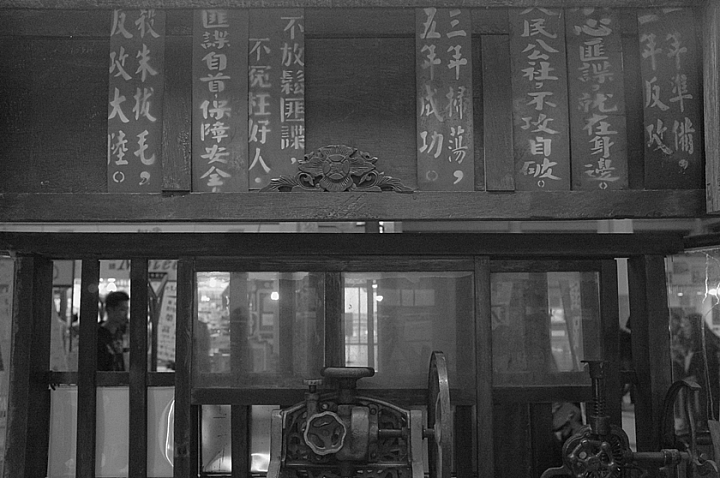 年準備，
二年反攻
心匪諜，就在身邊。
人民公社，不攻自破。
三年掃蕩，
五年成功。
不放鬆匪諜，
不冤枉好人．
匪諜自首保障安全
殺朱拔毛，
反攻大陸。